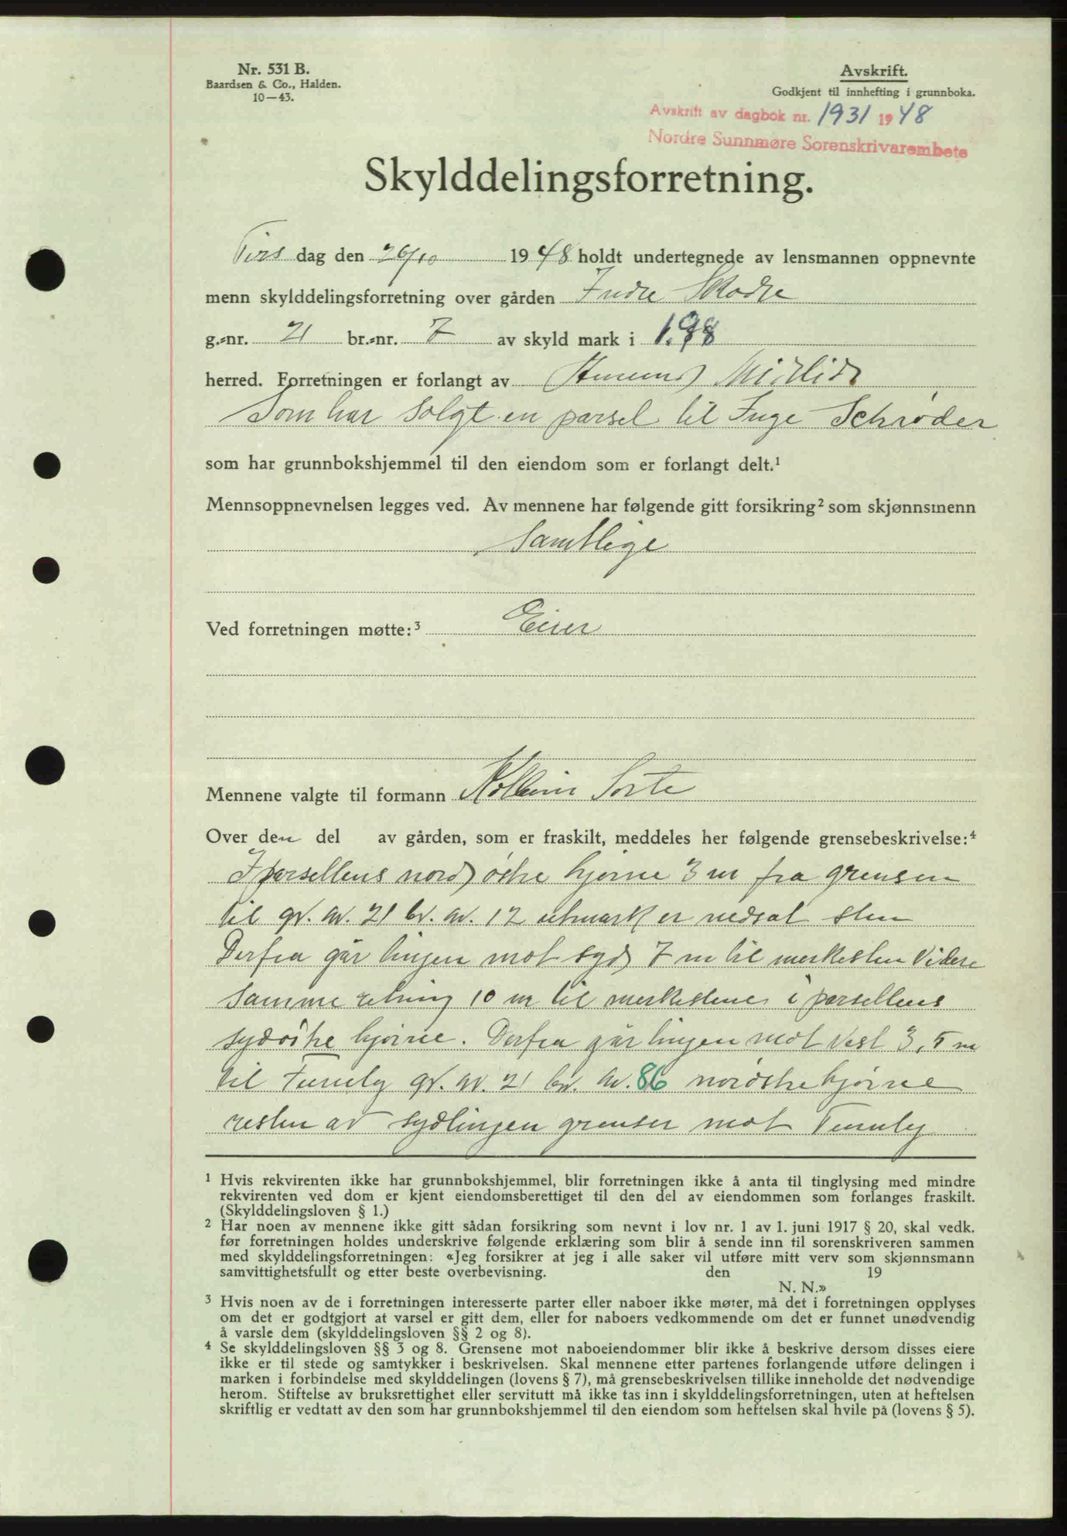 Nr. 531 B.
Baardsen & Co., Halden.
10—43.
Avskrift.
Godkjent til innhefting i grunnboka.
Avskrift av dagbok nr. 1931 1948
Nordre Sunnmøre Sorenskrivarembete
Skylddelingsforretning.
Tirsdag den 26/10 1948 holdt undertegnede av lensmannen oppnevnte
menn skylddelingsforretning over gården Indre Skodje
g.-nr. 21 br.-nr. 7 av skyld mark i 1.98
herred. Forretningen er forlangt av Midtlid
Som har solgt en parsel til Inge Schrøder
som har grunnbokshjemmel til den eiendom som er forlangt delt.¹
Mennsoppnevnelsen legges ved. Av mennene har følgende gitt forsikring² som skjønnsmenn
Samtlige
Ved forretningen møtte:³ Eier
Mennene valgte til formann Sorte
Over den del av gården, som er fraskilt, meddeles her følgende grensebeskrivelse:⁴
I parsellens nord østre hjørne 3 m fra grensen
til gr. nr. 21 br. nr. 12 utmark er nedsat sten
Derfra går linjen mot syd 7 m til merkesten videre
samme retning 10 m til merkestene i parsellens
sydøstre hjørne. Derfra går linjen mot vest 3,5 m
til gr. nr. 21 br. nr. 86 nordøstre hjørne
resten av sydlinjen grenser mot
¹ Hvis rekvirenten ikke har grunnbokshjemmel, blir forretningen ikke å anta til tinglysing med mindre
rekvirenten ved dom er kjent eiendomsberettiget til den del av eiendommen som forlanges fraskilt.
(Skylddelingsloven § 1.)
² Har noen av mennene ikke gitt sådan forsikring som nevnt i lov nr. 1 av 1. juni 1917 § 20, skal vedk.
før forretningen holdes underskrive følgende erklæring som blir å sende inn til sorenskriveren sammen
med skylddelingsforretningen: «Jeg forsikrer at jeg i alle saker vil utføre mitt verv som skjønnsmann
samvittighetsfullt og etter beste overbevisning. den 19
N. N.»
³ Hvis noen av de i forretningen interesserte parter eller naboer ikke møter, må det i forretningen opplyses
om det er godtgjort at varsel er gitt dem, eller for naboers vedkommende om det er funnet unødvendig
å varsle dem (skylddelingsloven §§ 2 og 8).
⁴ Se skylddelingsloven §§ 3 og 8. Grensene mot naboeiendommer blir ikke å beskrive dersom disses eiere
ikke er til stede og samtykker i beskrivelsen. Skal mennene etter partenes forlangende utføre delingen i
marken i forbindelse med skylddelingen (lovens § 7), må grensebeskrivelsen tillike inneholde det nødvendige
herom. Stiftelse av bruksrettighet eller servitutt må ikke tas inn i skylddelingsforretningen, uten at heftelsen
skriftlig er vedtatt av den som har grunnbokshjemmel til den eiendom som heftelsen skal hvile på (lovens § 5).